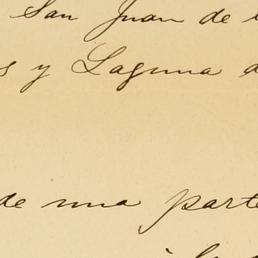 San Juan de
s y Laguna d
de una parte